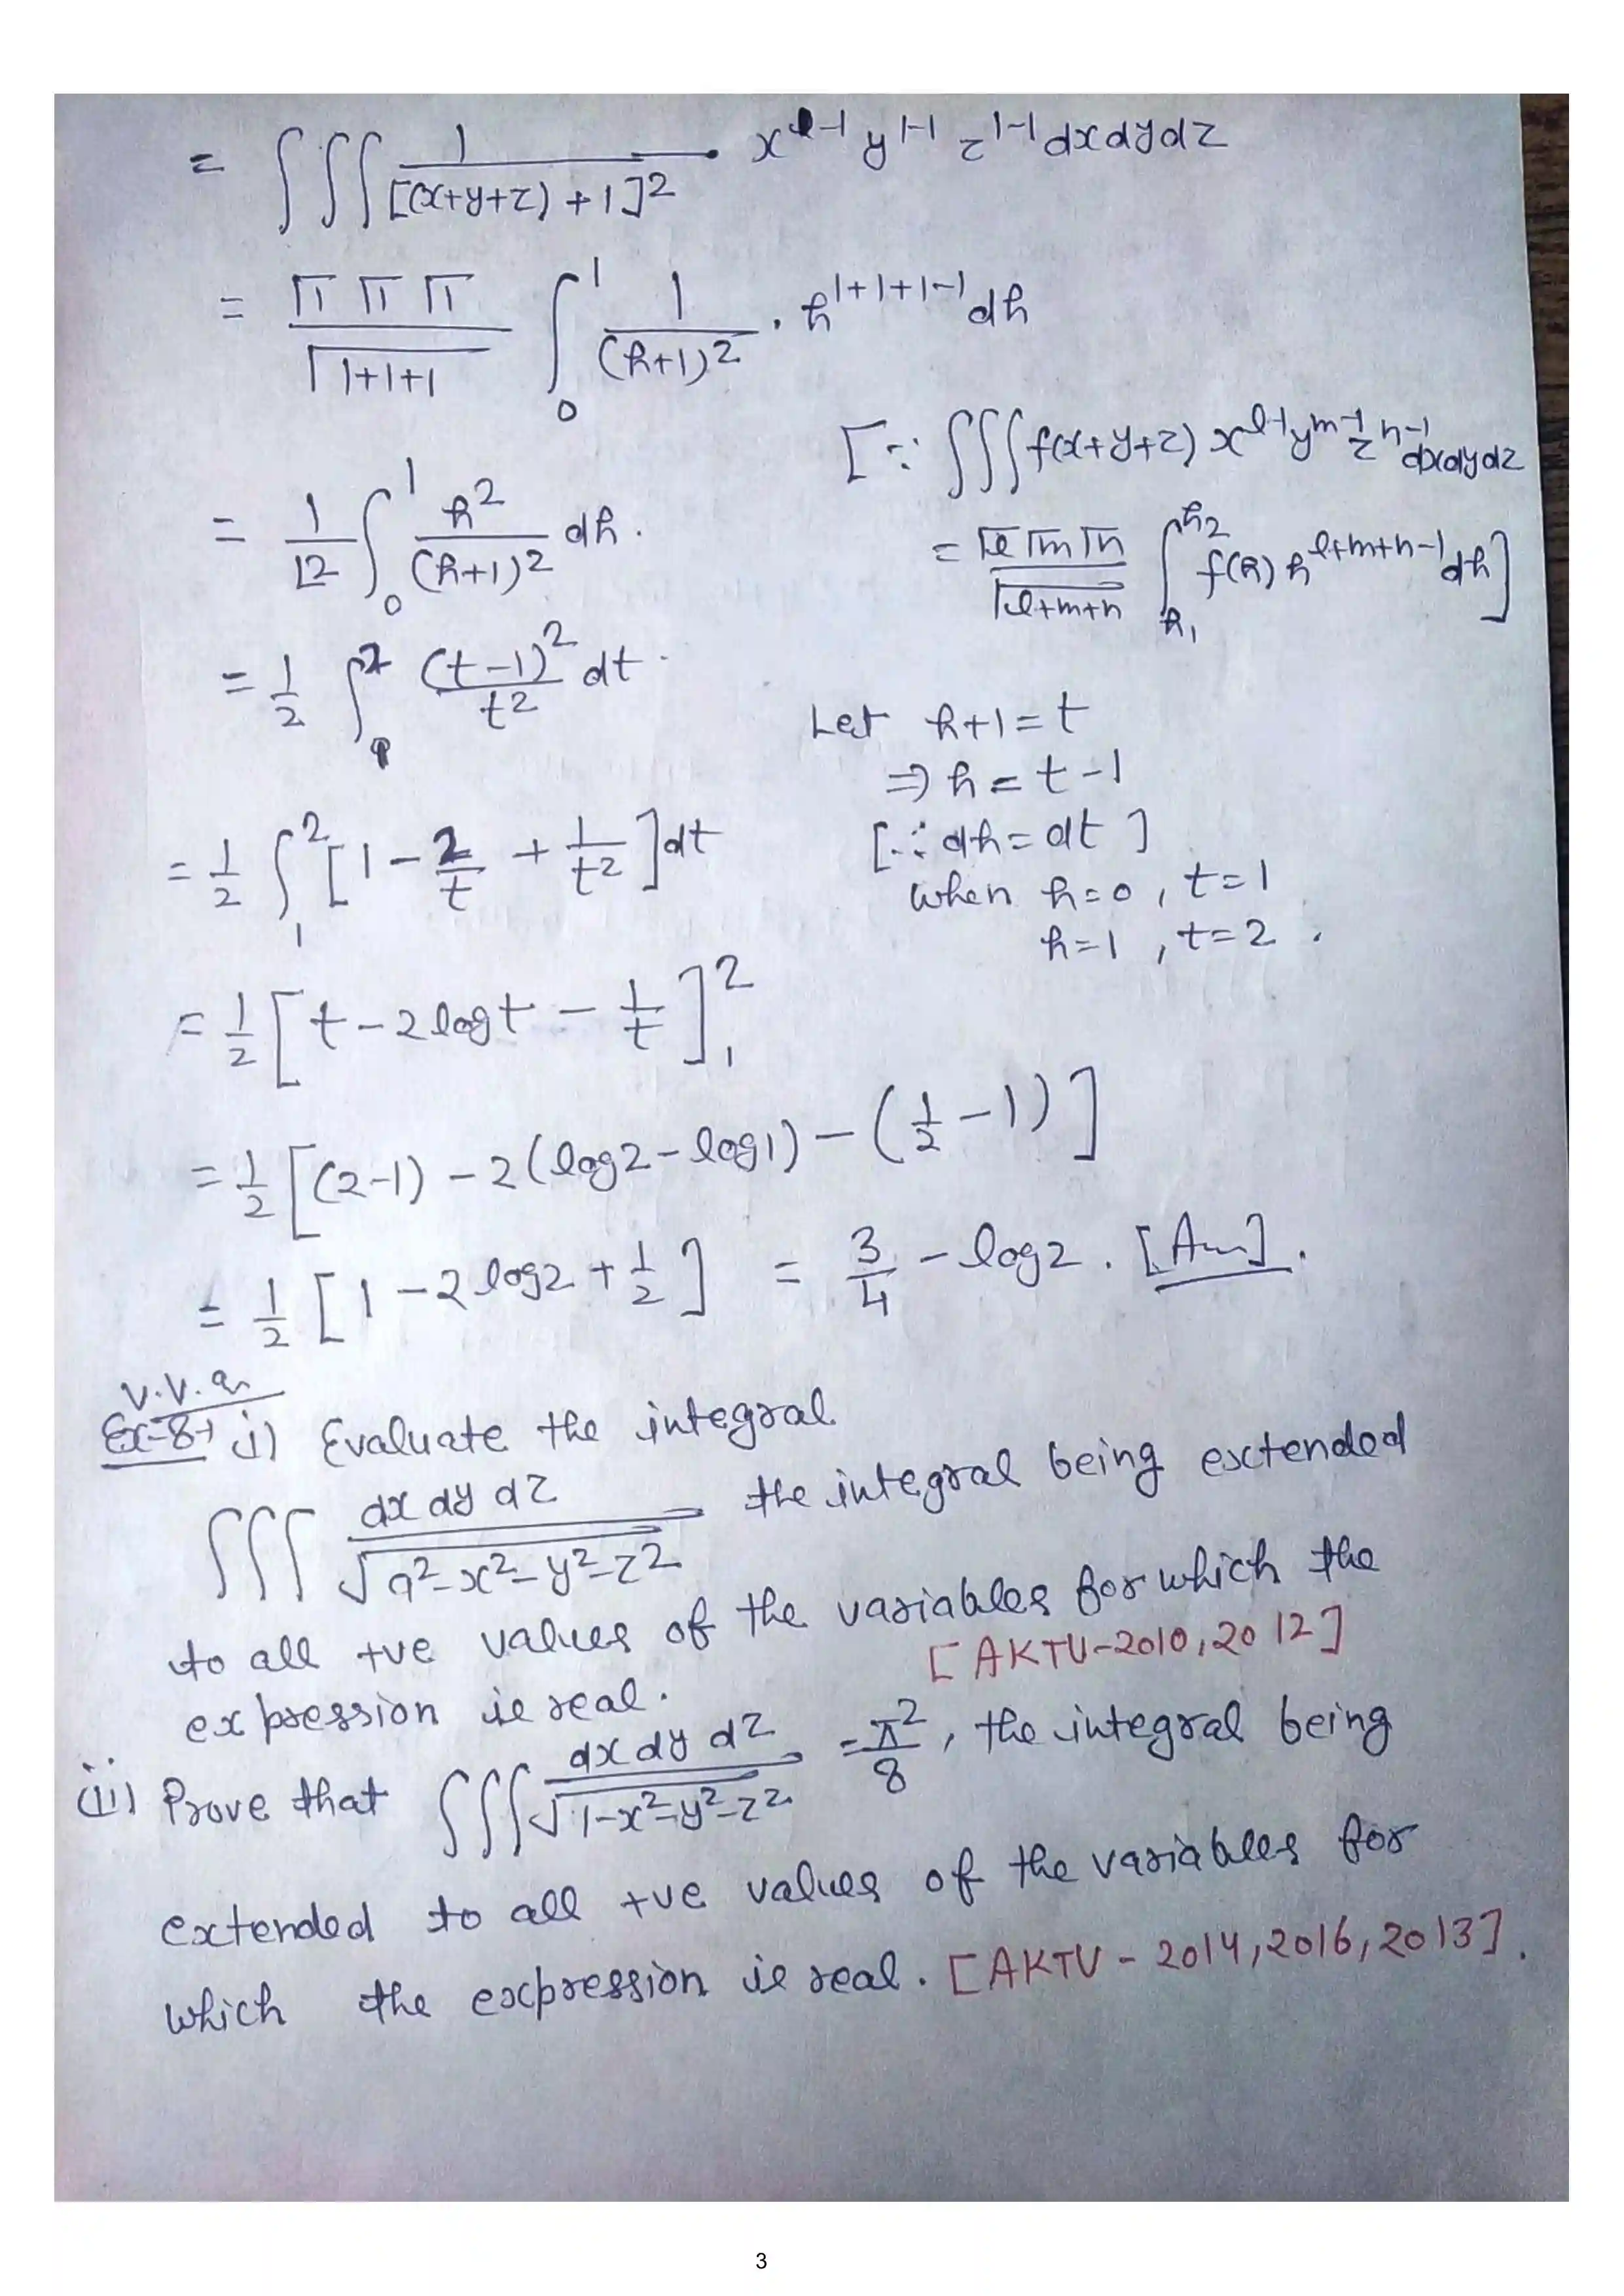 = ∫∫∫ 1/[(x+y+z)+1]² x^{l-1} y^{1-1} z^{1-1} dx dy dz
= Γ1 Γ1 Γ1 / Γ1+1+1 ∫₀¹ 1/(h+1)² · h^{1+1+1-1} dh
[∵ ∫∫∫ f(x+y+z) x^{l-1} y^{m-1} z^{n-1} dx dy dz
= 1/⌊2 ∫₀¹ h²/(h+1)² dh.
= Γl Γm Γn / Γl+m+n ∫_{h₁}^{h₂} f(h) h^{l+m+n-1} dh]
= 1/2 ∫₁² (t-1)²/t² dt.
Let h+1=t
⇒ h = t-1
= 1/2 ∫₁² [1 - 2/t + 1/t²] dt
[∴ dh = dt]
When h=0, t=1
h=1, t=2.
= 1/2 [t - 2 log t - 1/t]₁²
= 1/2 [(2-1) - 2(log2 - log1) - (1/2 - 1)]
= 1/2 [1 - 2 log2 + 1/2] = 3/4 - log2. [Ans].
V.V.
Ex-8→ i) Evaluate the integral
∫∫∫ dx dy dz / √a²-x²-y²-z² the integral being extended
to all +ve values of the variables for which the
expression is real. [AKTU-2010, 2012]
(ii) Prove that ∫∫∫ dx dy dz / √1-x²-y²-z² = π²/8, the integral being
extended to all +ve values of the variables for
which the expression is real. [AKTU - 2014, 2016, 2013].
3